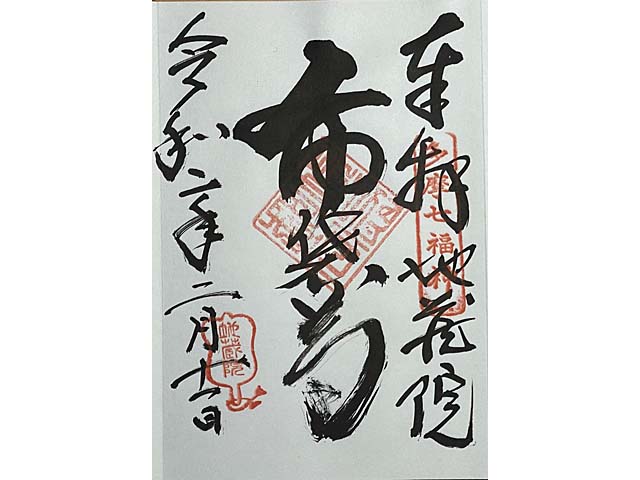 奉拝 地蔵院
多摩七福神
布袋尊
令和二年二月十一日
地蔵院